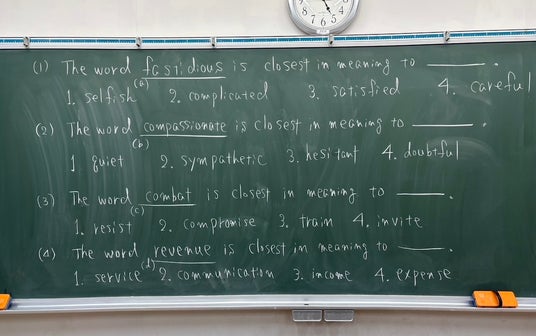 (1) The word fastidious is closest in meaning to ______.
(a)
1. selfish 2. complicated 3. satisfied 4. careful
(2) The word compassionate is closest in meaning to ______.
(b)
1 quiet 2. sympathetic 3. hesitant 4. doubtful
(3) The word combat is closest in meaning to ______.
(c)
1. resist 2. compromise 3. train 4. invite
(4) The word revenue is closest in meaning to ______.
(d)
1. service 2. communication 3. income 4. expense